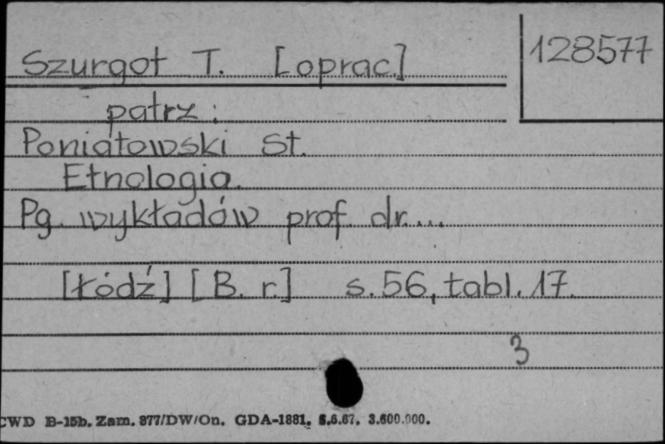 Szurgot T. [oprac.]
128577
patrz:
Poniatowski St.
Etnologia.
Pg. wykładów prof. dr...
[Łódź] [B. r.] s. 56, tabl. 17.
3
CWD B-15b. Zam. 877/DW/On. GDA-1881, 5.6.67. 3.600.000.